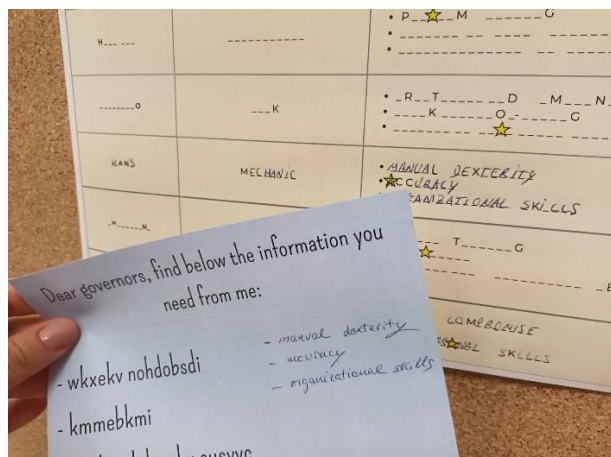 • P_ _ _ M _ _ _ _ _ _ G
H_ _ _ _ _
_ _ _ _ _ _ _ O
_ _ _ K
• _ R _ T _ _ _ _ _ _ D _ M _ _ _ N
_ _ _ _ K _ _ _ _ _ _ O _ - _ _ _ _ _ G
HANS
MECHANIC
• MANUAL DEXTERITY
• ACCURACY
ORGANIZATIONAL SKILLS
_ H _ _ _ M _
T _ _ _ _ _ _ G
COMPROMISE
SKILLS
Dear governors, find below the information you
need from me:
- wkxekv nohdobsdi
- kmmebkmi
- manual dexterity
- accuracy
- organizational skills